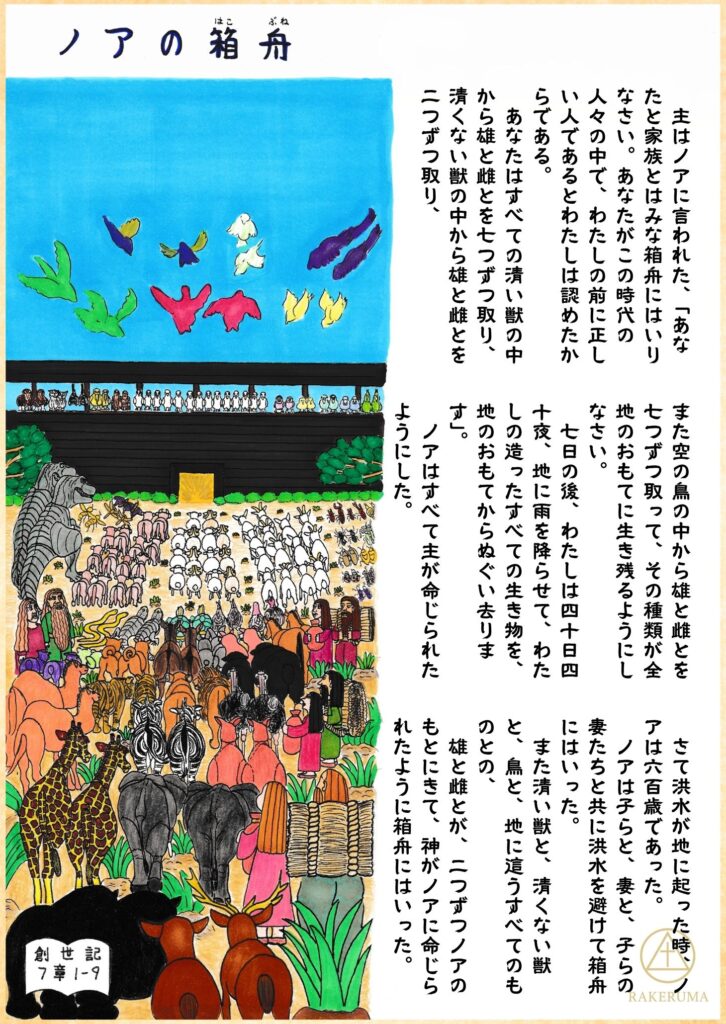 ノアの箱舟
はこ ぶね
主はノアに言われた、「あな
たと家族とはみな箱舟にはいり
なさい。あなたがこの時代の
人々の中で、わたしの前に正し
い人であるとわたしは認めたか
らである。
あなたはすべての清い獣の中
から雄と雌とを七つずつ取り、
清くない獣の中から雄と雌とを
二つずつ取り、
また空の鳥の中から雄と雌とを
七つずつ取って、その種類が全
地のおもてに生き残るようにし
なさい。
七日の後、わたしは四十日四
十夜、地に雨を降らせて、わた
しの造ったすべての生き物を、
地のおもてからぬぐい去りま
す」。
ノアはすべて主が命じられた
ようにした。
さて洪水が地に起った時、ノ
アは六百歳であった。
ノアは子らと、妻と、子らの
妻たちと共に洪水を避けて箱舟
にはいった。
また清い獣と、清くない獣
と、鳥と、地に這うすべてのも
のとの、
雄と雌とが、二つずつノアの
もとにきて、神がノアに命じら
れたように箱舟にはいった。
創世記
7章1-9
RAKERUMA